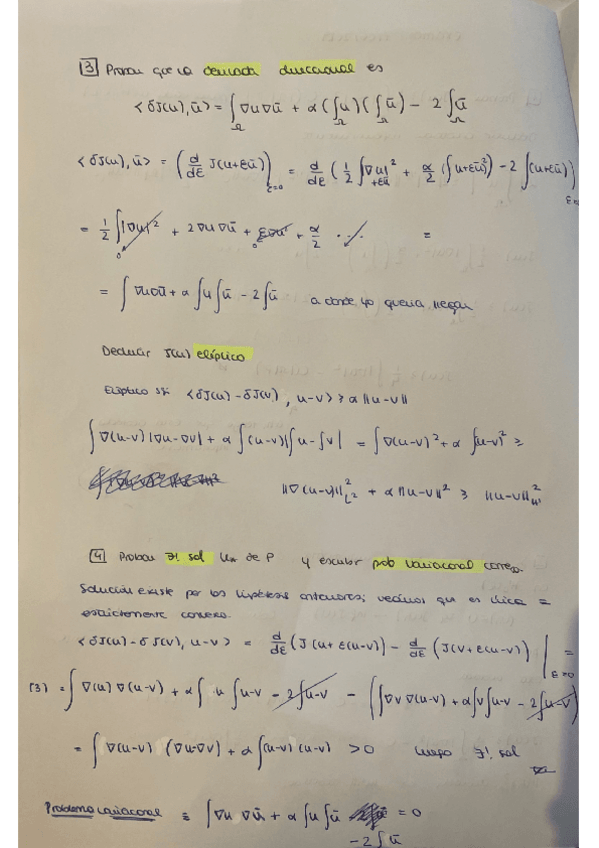 3 Probar que la derivada direccional es
<δJ(u), ū> = ∫_Ω ∇u∇ū + α(∫_Ω u)(∫_Ω ū) − 2∫_Ω ū
<δJ(u), ū> = (d/dε J(u+εū))|_{ε=0} = d/dε (1/2 ∫|∇u+εū|² + α/2 (∫u+εū)²) − 2∫(u+εū))_{ε=0}
= 1/2 ∫|∇u|² + 2∇u∇ū + ε∇ū² + α/2 ... =
= ∫∇u∇ū + α∫u∫ū − 2∫ū a donde yo quería llegar
Deducir J(u) elíptico
Elíptico si: <δJ(u) − δJ(v), u−v> ≥ α||u−v||
∫∇(u−v)|∇u−∇v| + α∫(u−v)|∫u−∫v| = ∫∇(u−v)² + α∫(u−v)² ≥
||∇(u−v)||²_{L²} + α||u−v||² ≥ ||u−v||²_{H¹}
4 Probar ∃! sol u* de P y escribir pob variacional corresp.
Solución existe por las hipótesis anteriores; veamos que es única =
estrictamente convexo.
<δJ(u) − δJ(v), u−v> = d/dε (J(u+ε(u−v)) − d/dε (J(v+ε(u−v)) |_{ε=0} =
(3) = ∫∇(u)∇(u−v) + α∫u∫u−v − 2∫u−v − (∫∇v∇(u−v) + α∫v∫u−v − 2∫u−v)
= ∫∇(u−v)(∇u−∇v) + α∫(u−v)(u−v) > 0 luego ∃! sol
Problema variacional ≡ ∫∇u∇ū + α∫u∫ū = 0
− 2∫ū